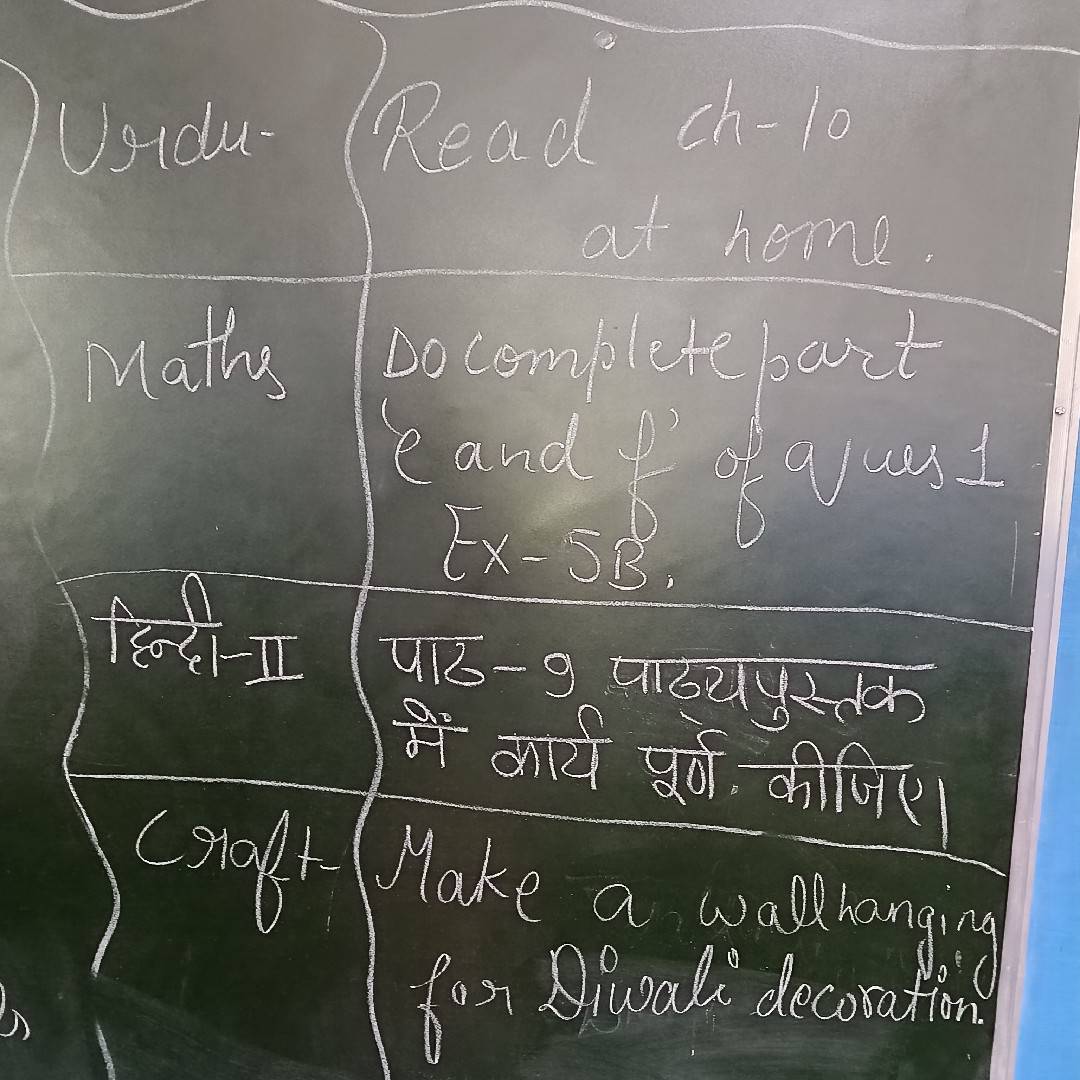 Urdu- Read ch-10
at home.
Maths Do complete part
'e and f' of ques 1
Ex-5B.
हिन्दी-II पाठ-9 पाठ्यपुस्तक
में कार्य पूर्ण कीजिए।
Craft- Make a wallhanging
for Diwali decoration.